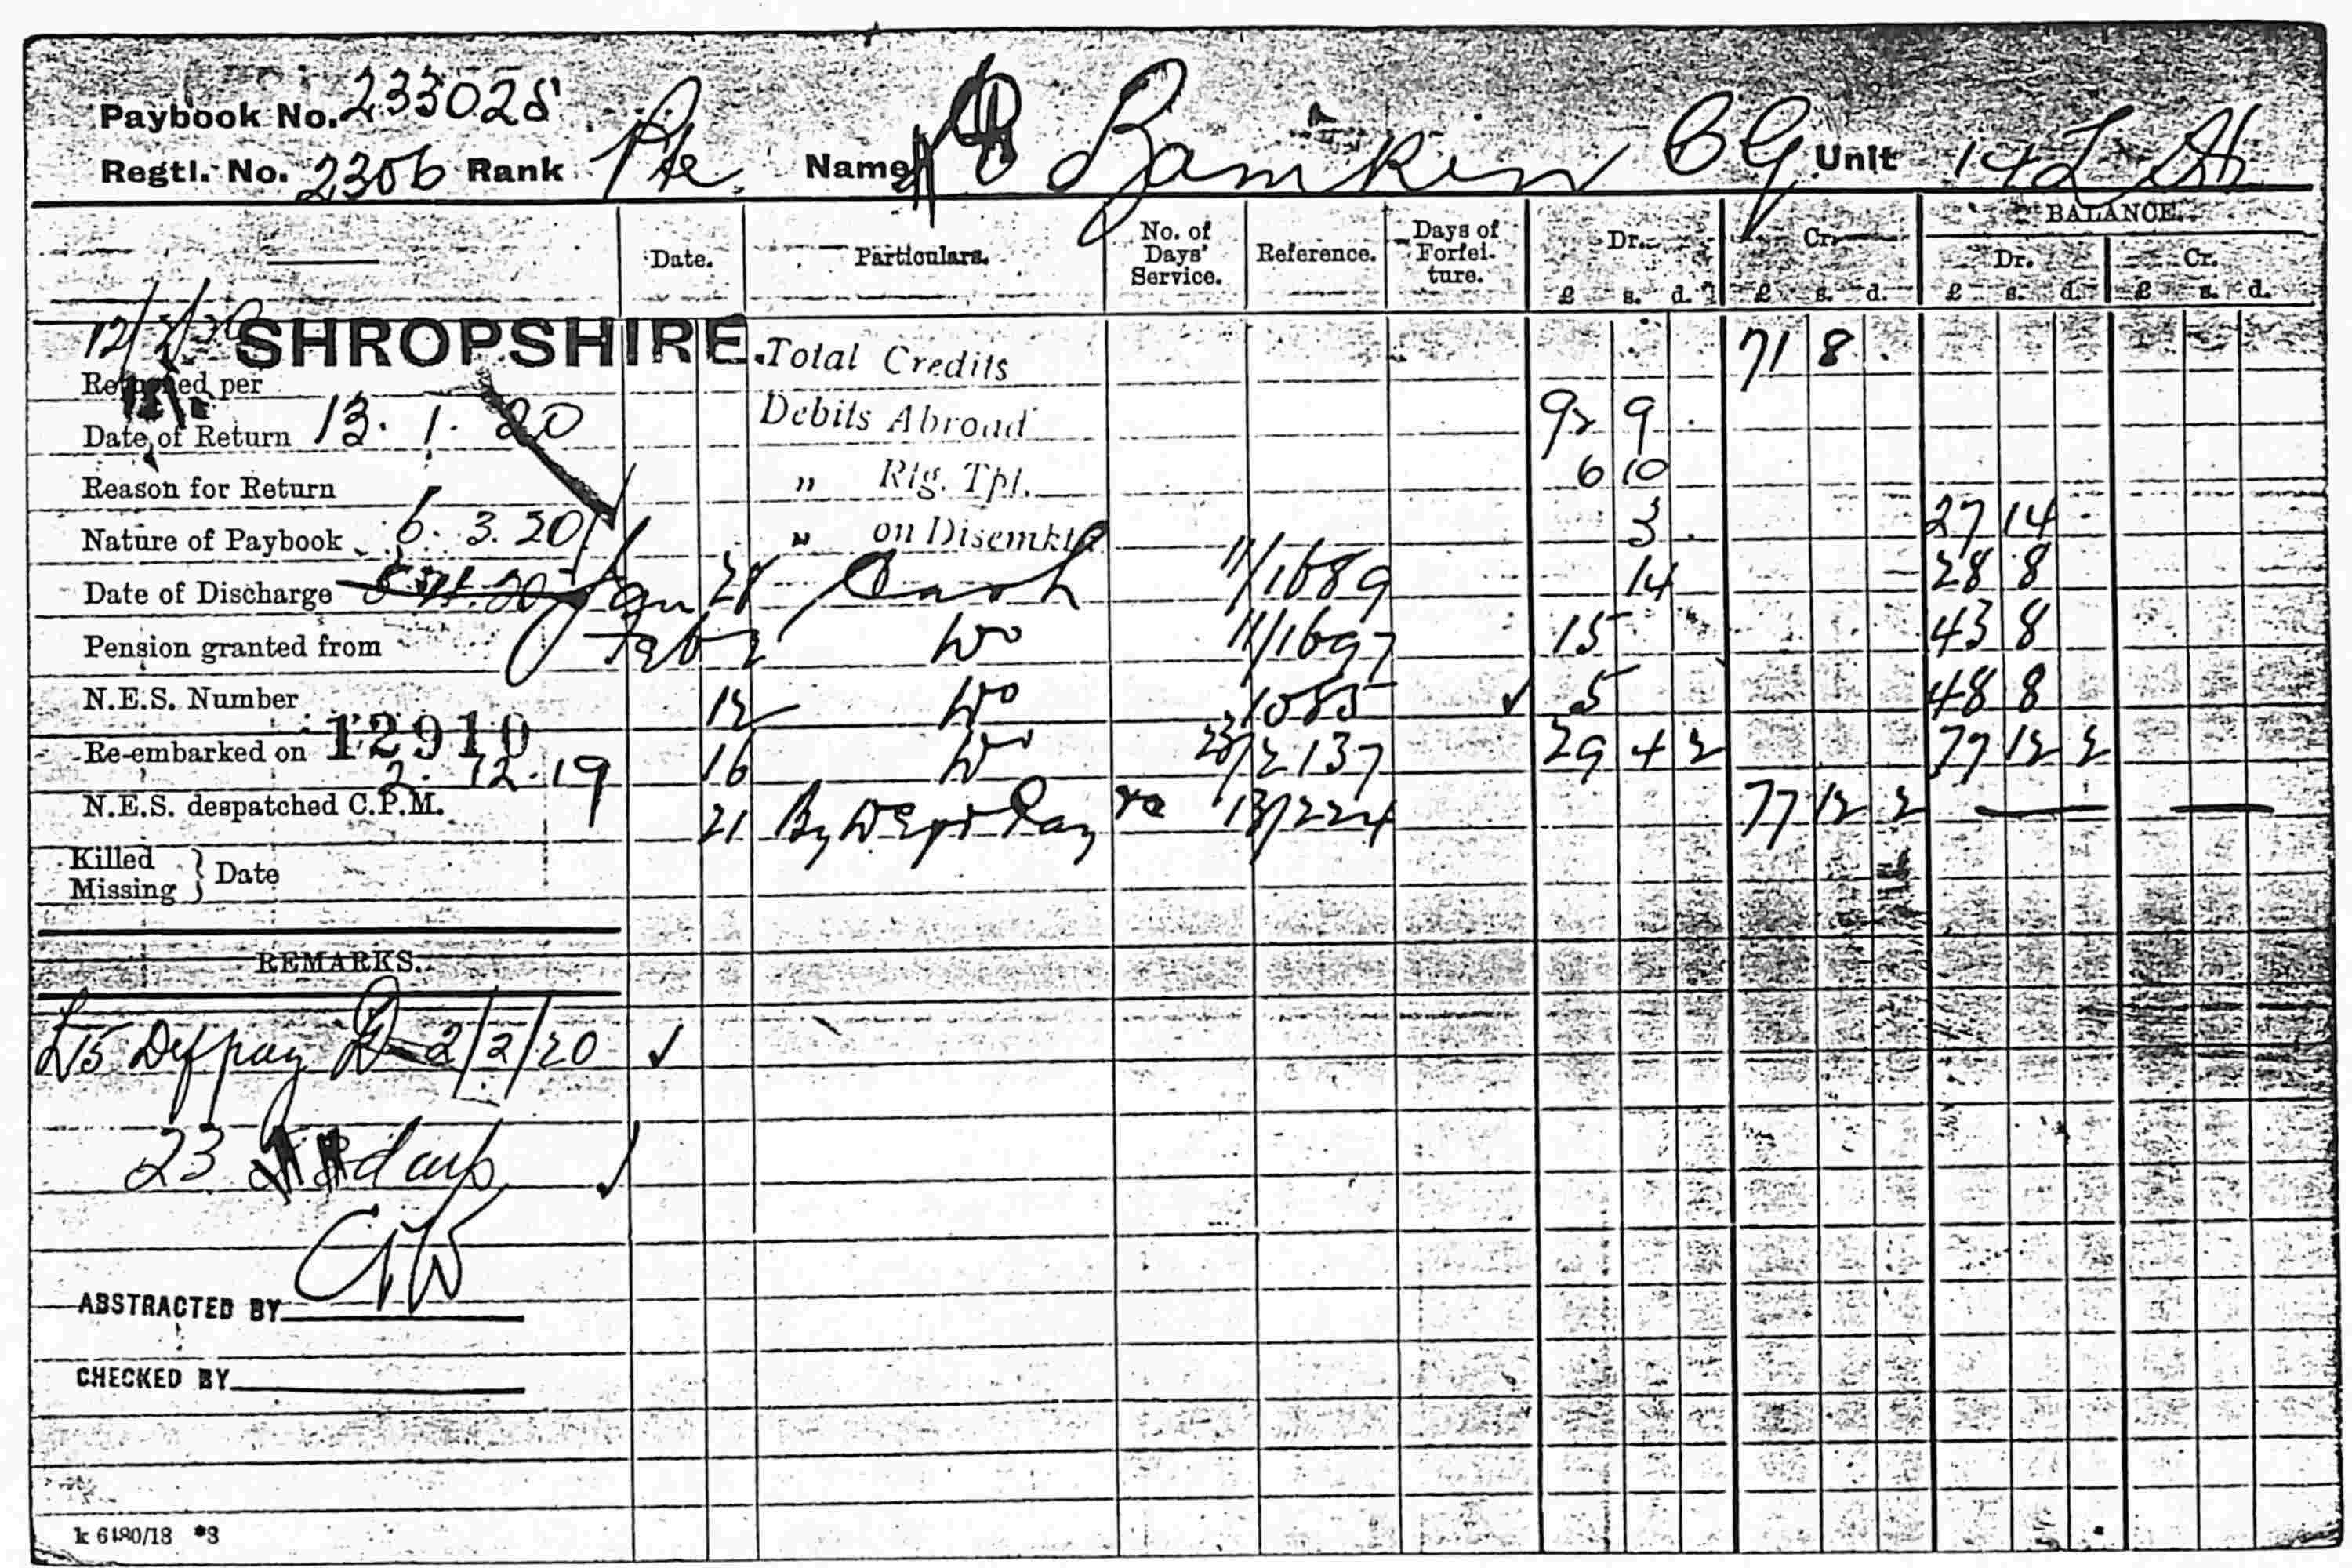 Paybook No. 233028
Regtl. No. 2306 Rank Pte. Name Bamikin C G Unit 14 L H
Date. Particulars. No. of Days' Service. Reference. Days of Forfei-ture. Dr. Cr. BALANCE.
Dr. Cr.
£ s. d. £ s. d. £ s. d. £ s. d.
SHROPSHIRE Total Credits 71 8 .
Returned per
Debits Abroad 92 9 .
Date of Return 13. 1. 20
" Rtg. Tpt. 6 10
Reason for Return
" on Disemkt 3 . 27 14 .
Nature of Paybook 6. 3. 20
Date of Discharge Jan 28 Cash 11/1689 14 28 8
Pension granted from Feb 2 Do 11/1697 15 43 8
N.E.S. Number 12 Do 1085 ✓ 5 48 8
12910
Re-embarked on 2. 12. 19 16 Do 23/2137 29 4 2 77 12 2
N.E.S. despatched C.P.M. 21 By Pay 13/224 77 12 2 — —
Killed
Missing } Date
REMARKS.
£15 Def pay 2/2/20 ✓
23 days ✓
ABSTRACTED BY
CHECKED BY
k 6480/18 *3